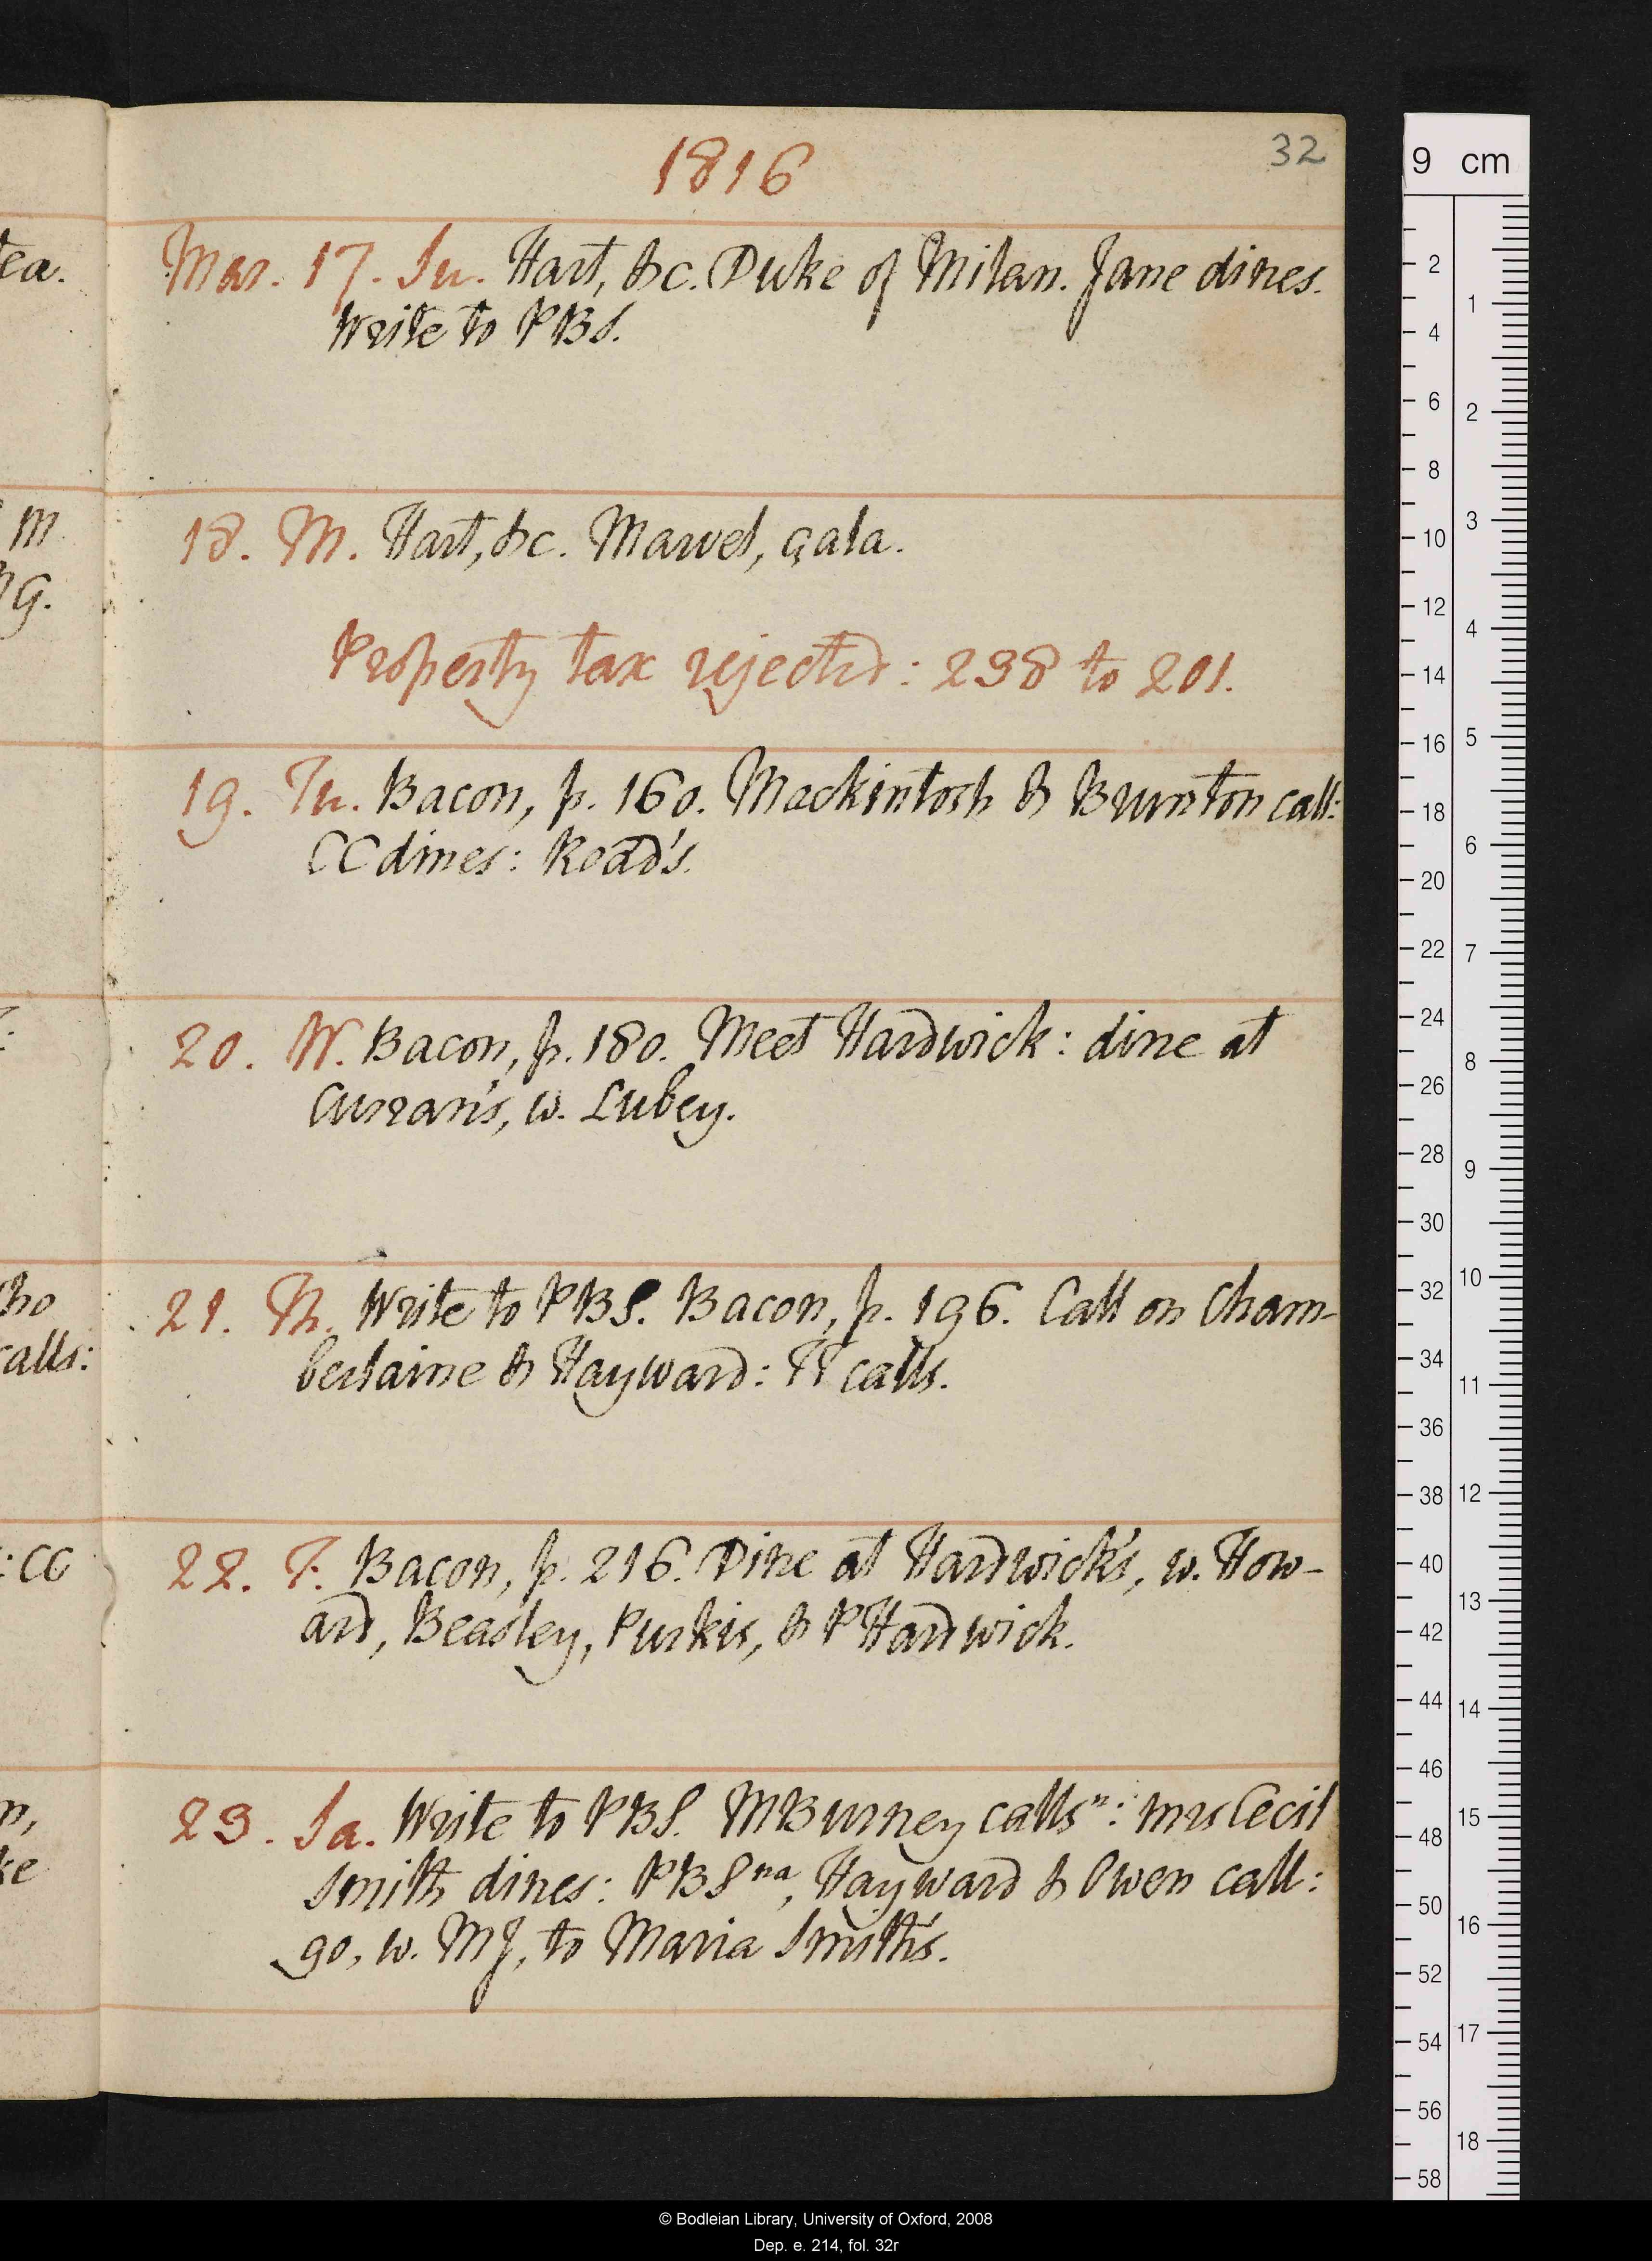 1816
32
tea.
Mar. 17. Su. Hart, &c. Duke of Milan. Jane dines.
Write to PBS.
m
G.
18. M. Hart, &c. Marvel, çala.
Property tax rejected: 238 to 201.
19. Tu. Bacon, p. 160. Mackintosh & Brunton call:
CC dines: Read's.
20. W. Bacon, p. 180. Meet Hardwick: dine at
Curran's, w. Lubey.
21. Th. Write to PBS. Bacon, p. 196. Call on Cham-
berlaine & Hayward: TT calls.
ho
calls:
22. F. Bacon, p. 216. Dine at Hardwick's, w. How-
ard, Beasley, Purkis, & P Hardwick.
: CC
23. Sa. Write to PBS. MBurney calls n: mrs Cecil
Smith dines: PBS na, Hayward & Owen call:
go, w. MJ, to Maria Smith's.
n,
ke
9 cm
2 4 6 8 10 12 14 16 18 20 22 24 26 28 30 32 34 36 38 40 42 44 46 48 50 52 54 56 58
1 2 3 4 5 6 7 8 9 10 11 12 13 14 15 16 17 18
© Bodleian Library, University of Oxford, 2008
Dep. e. 214, fol. 32r